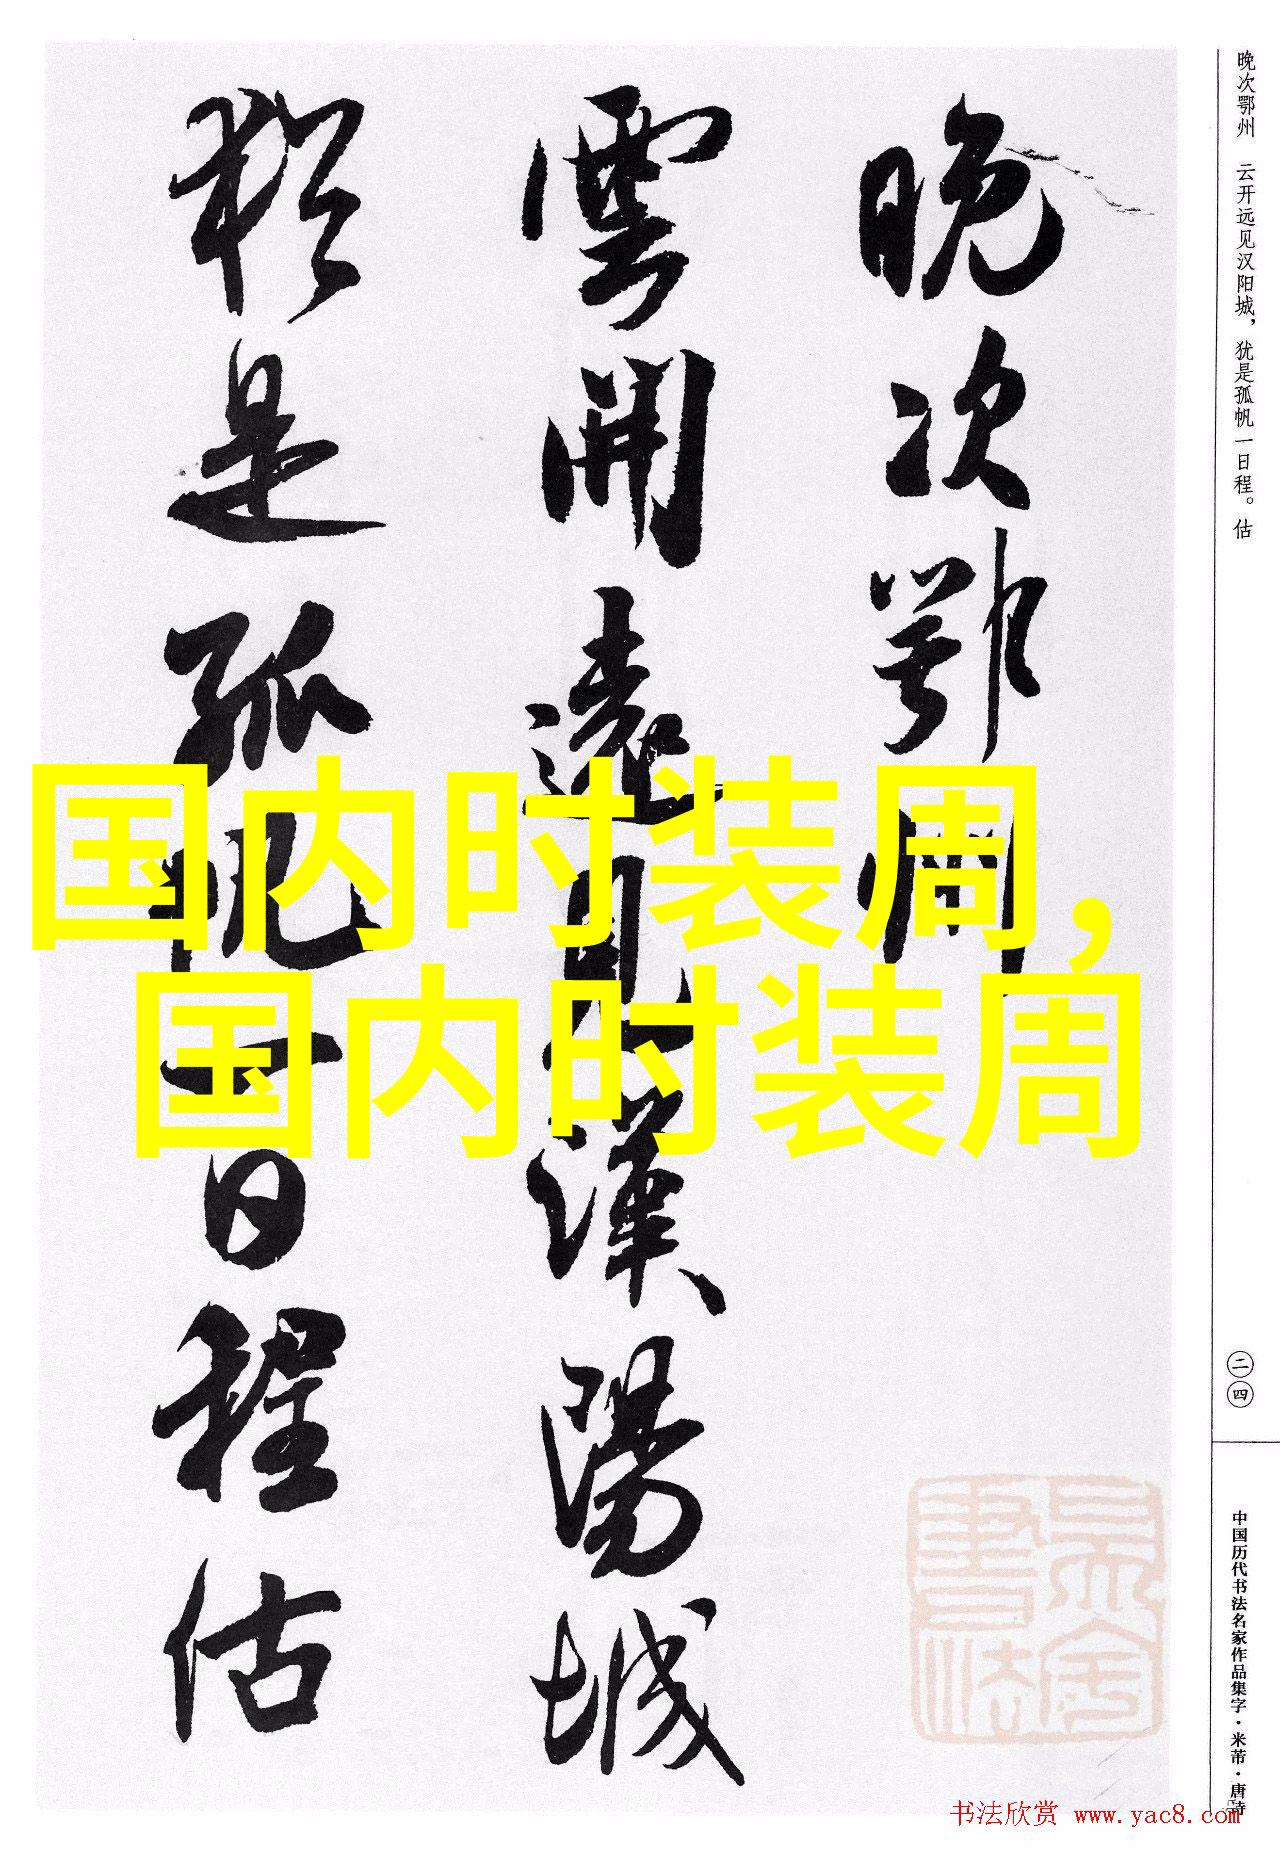 晚次鄂州
雲開遠見漢陽城
猶是孤帆一日程估
国内时装周,
国内时装周
晚次鄂州 云开远见汉阳城，犹是孤帆一日程。估
二四
中国历代书法名家作品集字·米芾·唐诗
书法欣赏 www.yac8.com